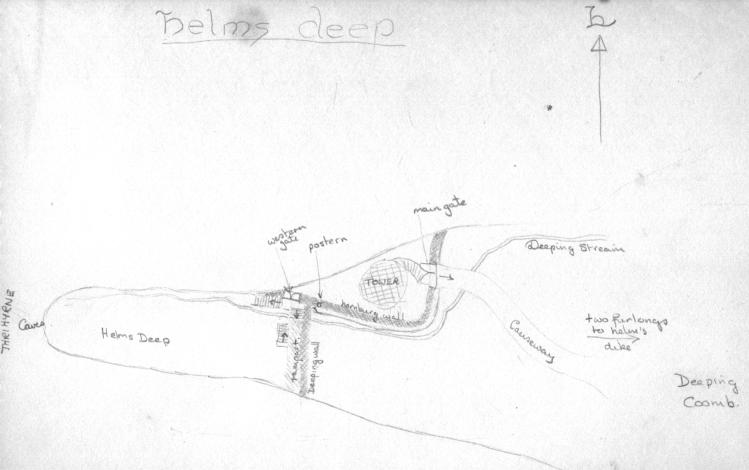 helms deep
h
main gate
western
gate
postern
Deeping Stream
TOWER
hornburg wall
THRIHYRNE
Caves
Helms Deep
rampart
Deeping wall
Causeway
two furlongs
to helm's
dike
Deeping
Coomb.